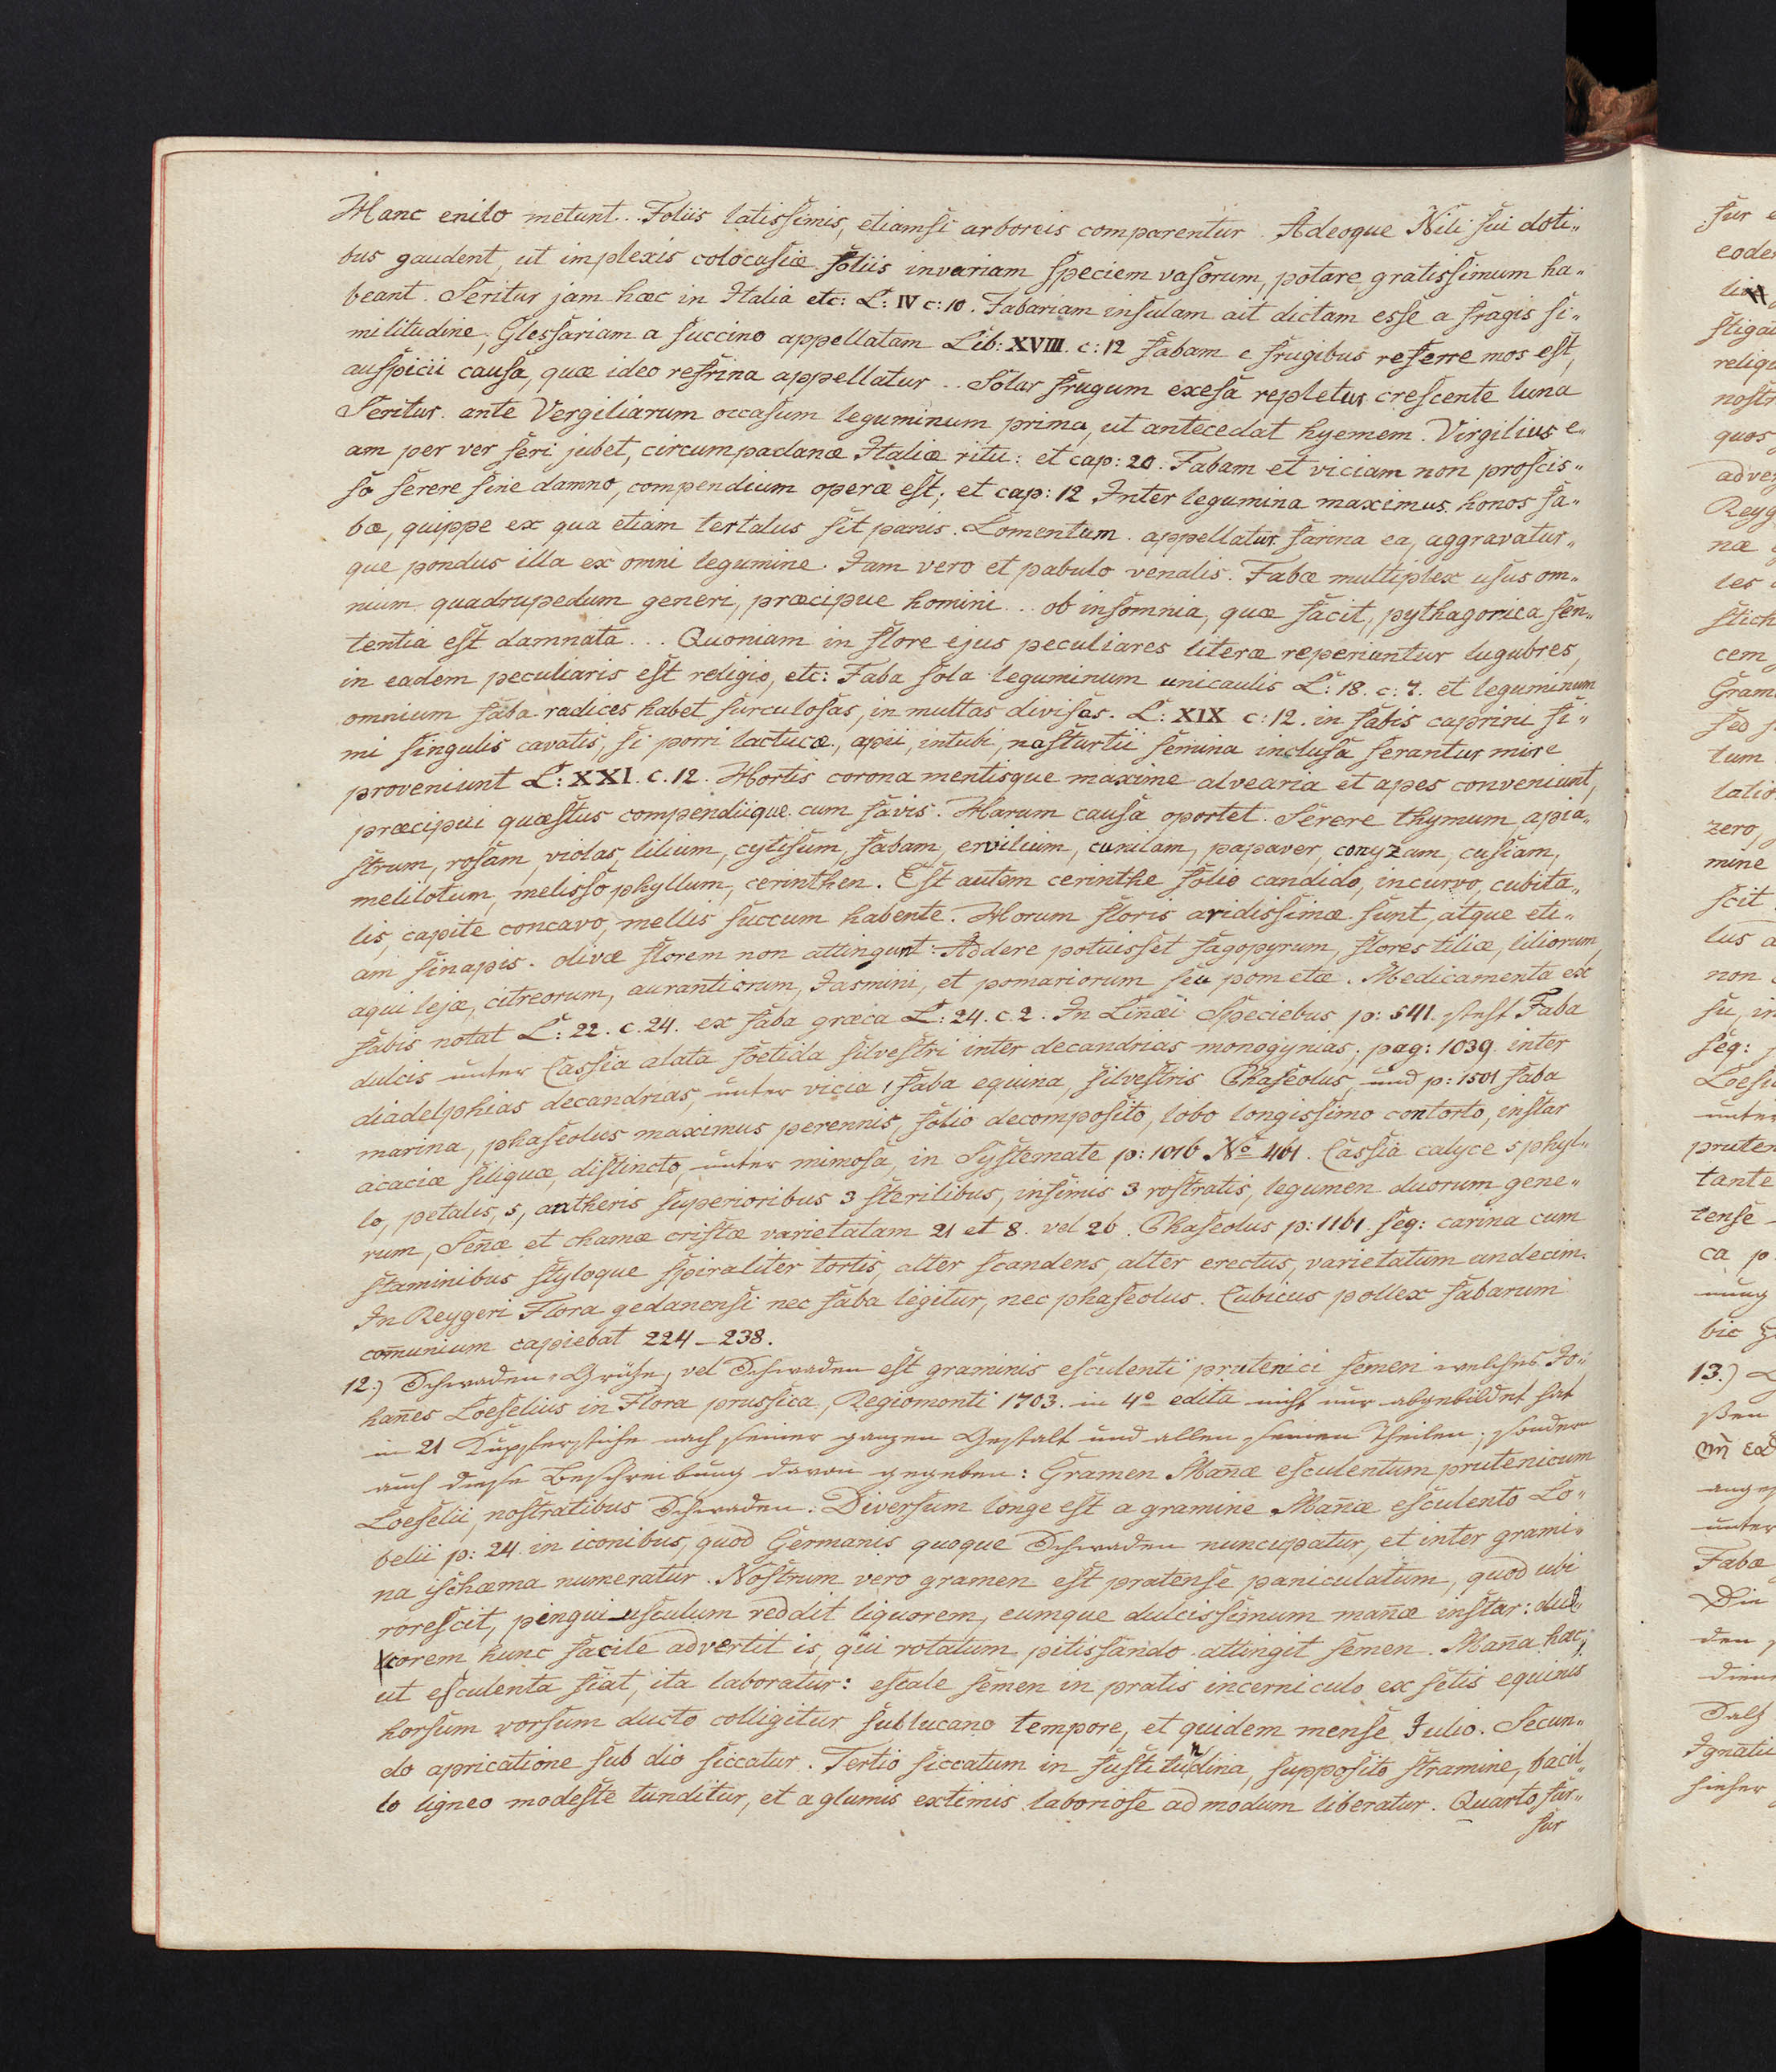 Hanc enilo metunt... Foliis latissimis, etiamsi arboreis comparentur. Adeoque Nili sui doti„
bus gaudent, ut implexis colocasiæ foliis invariam speciem vasorum, potare gratissimum ha„
beant. Seritur jam hæc in Italia etc: L: IV c: 10. Fabariam insulam ait dictam esse a fragis si„
militudine, Glessariam a succino appellatam Lib: XVIII. c: 12 fabam e frugibus referre mos est,
auspicii causa, quæ ideo refrina appellatur .. Solar frugum exesa repletur crescente luna
Seritur ante Vergiliarum occasum leguminum prima, ut antecedat hyemem. Virgilius e„
am per ver seri jubet, circumpadanæ Italiæ ritu: et cap: 20. Fabam et viciam non proscis„
so serere sine damno, compendium operæ est; et cap: 12 Inter legumina maximus honos fa„
bæ, quippe ex qua etiam tertalus sit panis. Lomentum appellatur farina ea, aggravatur„
que pondus illa ex omni legumine. Jam vero et pabulo venalis. Fabæ multiplex usus om„
nium quadrupedum generi, præcipue homini... ob insomnia, quæ facit, pythagorica sen„
tentia est damnata... Quoniam in flore ejus peculiares literæ reperiuntur lugubres,
in eadem peculiaris est religio, etc: Faba sola leguminum unicaulis L: 18. c: 7. et leguminum
omnium faba radices habet surculosas, in multas divisas. L: XIX c: 12. in fabis caprini fi„
mi singulis cavatis, si porri lactucæ, apii, intubi, nasturtii semina inclusa serantur mire
proveniunt L: XXI. c. 12. Hortis corona mentisque maxime alvearia et apes conveniunt,
præcipui quæstus compendiique cum favis. Harum causa oportet serere thymum, apia„
strum, rosam, violas, lilium, cytisum, fabam, ervilium, cunilam, papaver, conyzam, casiam,
melilotum, melissophyllum, cerinthen. Est autem cerinthe folio candido, incurvo, cubita„
lis, capite concavo, mellis succum habente. Horum floris avidissimæ sunt, atque eti„
am sinapis. olivæ florem non attingunt: Addere potuisset fagopyrum, flores tiliæ, liliorum,
aquilejæ, citreorum, aurantiorum, Jasmini, et pomariorum seu pometæ. Medicamenta ex
fabis notat L: 22. c. 24. ex faba græca L: 24. c. 2. In Lin̄æi Speciebus p: 541. steht Faba
dulcis unter Cassia alata foetida silvestri inter decandrias monogynias; pag: 1039. inter
diadelphias decandrias, unter vicia, faba equina, silvestris Phaseolus, und p: 1501 faba
marina, phaseolus maximus perennis, folio decomposito, lobo longissimo contorto, instar
acaciæ siliquæ, distincto, unter mimosa, in Systemate p: 1016 No 461. Cassia calyce 5 phyl„
lo, petalis, 5, antheris superioribus 3 sterilibus, infimis 3 rostratis, legumen duorum gene„
rum, Sen̄æ et chamæ cristæ varietatam 21 et 8. vel 26. Phaseolus p: 1161. seq: carina cum
staminibus styloque spiraliter tortis, alter scandens, alter erectus, varietatum undecim.
In Reygeri Flora gedanensi nec faba legitur, nec phaseolus. Cubicus pollex fabarum
com̄unium capiebat 224–238.
12.) Schwaden-Grütze, vel Schwaden est graminis esculenti prutenici semen welches Jo„
han̄es Loeselius in Flora prussica, Regiomonti 1703. in 4o edita nicht nur abgebildet hat
in 21 Kupferstiche nach seiner ganzen Gestalt und allen seinen Theilen; sondern
auch diese Beschreibung davon gegeben: Gramen Man̄æ esculentum prutenicum
Loeselii, nostratibus Schwaden. Diversum longe est a gramine Man̄æ esculento Lo„
belii p: 24 in iconibus, quod Germanis quoque Schwaden nuncupatur, et inter grami„
na ischæma numeratur. Nostrum vero gramen est pratense paniculatum, quod ubi
rorescit, pinguiusculum reddit liquorem, eumque dulcissimum man̄æ instar: dul„
corem hunc facile advertit is, qui rotatum pitissando attingit semen. Man̄a hæc,
ut esculenta fiat, ita laboratur: escale semen in pratis incerniculo ex setis equinis
horsum vorsum ducto colligitur sublucano tempore, et quidem mense Julio. Secun„
do apricatione sub dio siccatur. Tertio siccatum in fustitundina, supposito stramine, bacil„
lo ligneo modeste tunditur, et a glumis extimis laboriose admodum liberatur. Quarto fur„
fur